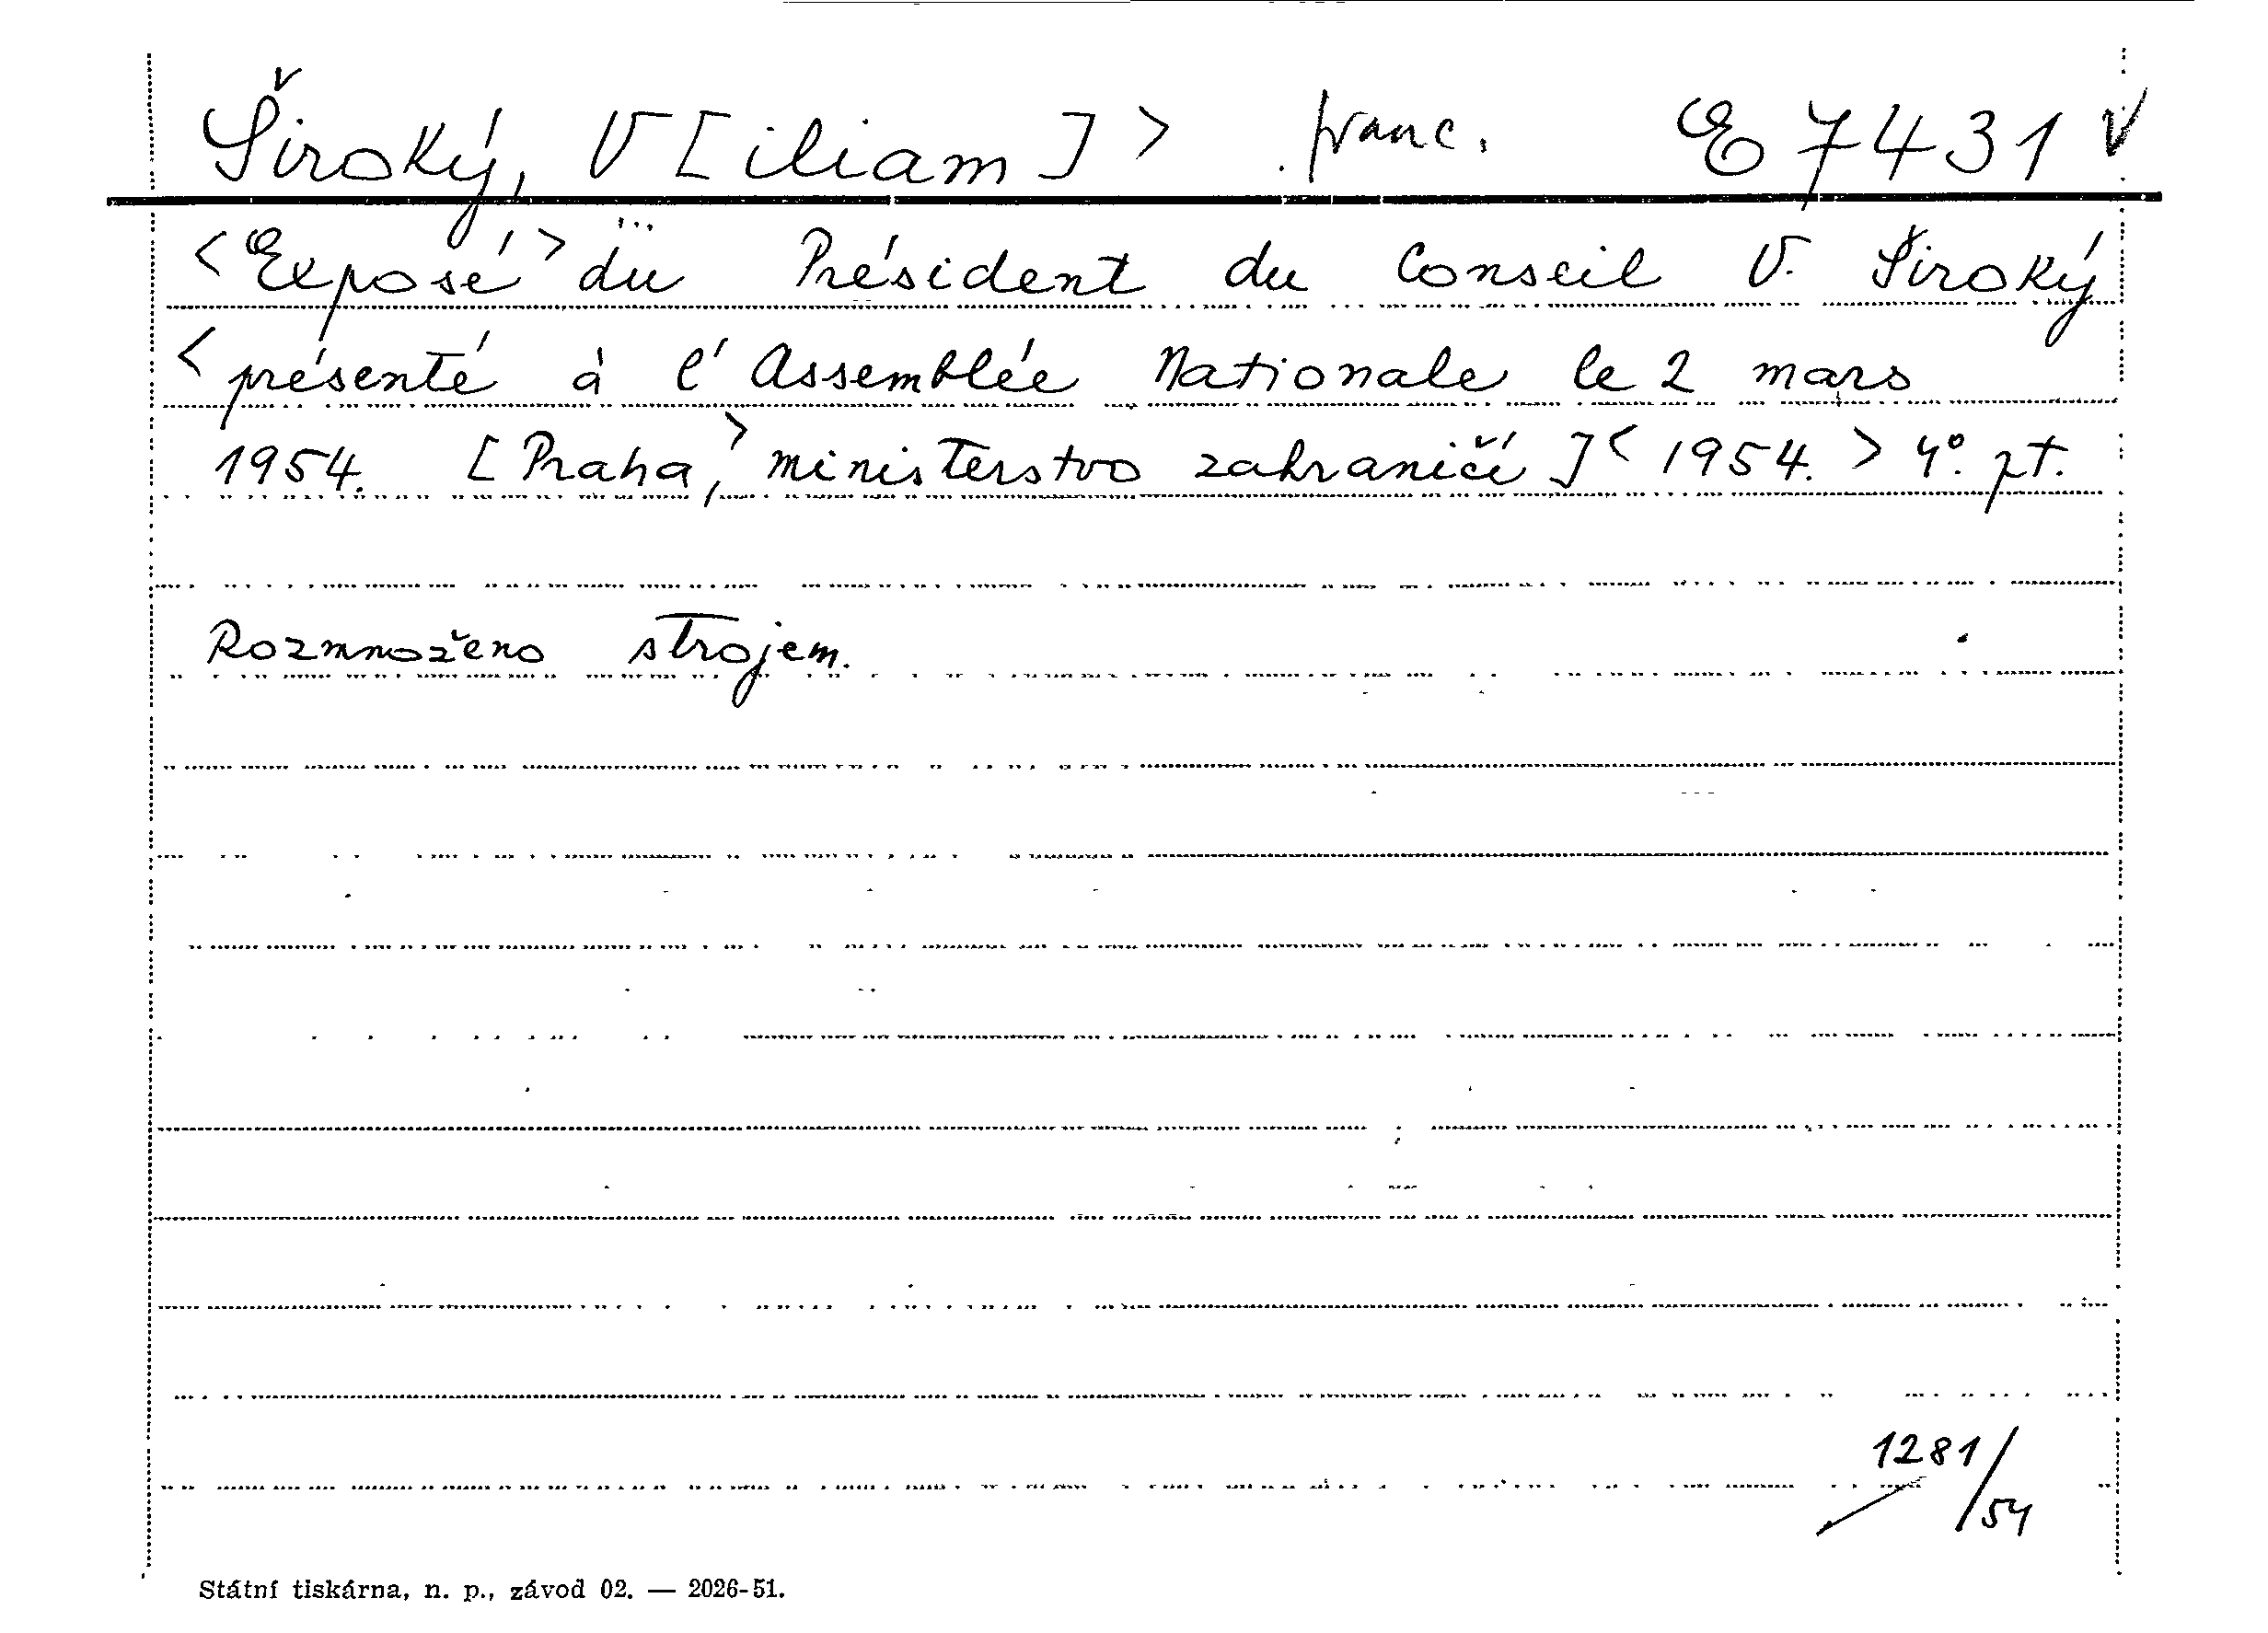 Široký, V[iliam]> franc. E 7431
<Exposé> du Président du Conseil V. Široký
<présenté à l'Assemblée Nationale le 2 mars
1954. [Praha,> ministerstvo zahraničí]< 1954.> 4°. pt.
Rozmnoženo strojem.
1281/54
Státní tiskárna, n. p., závod 02. — 2026-51.